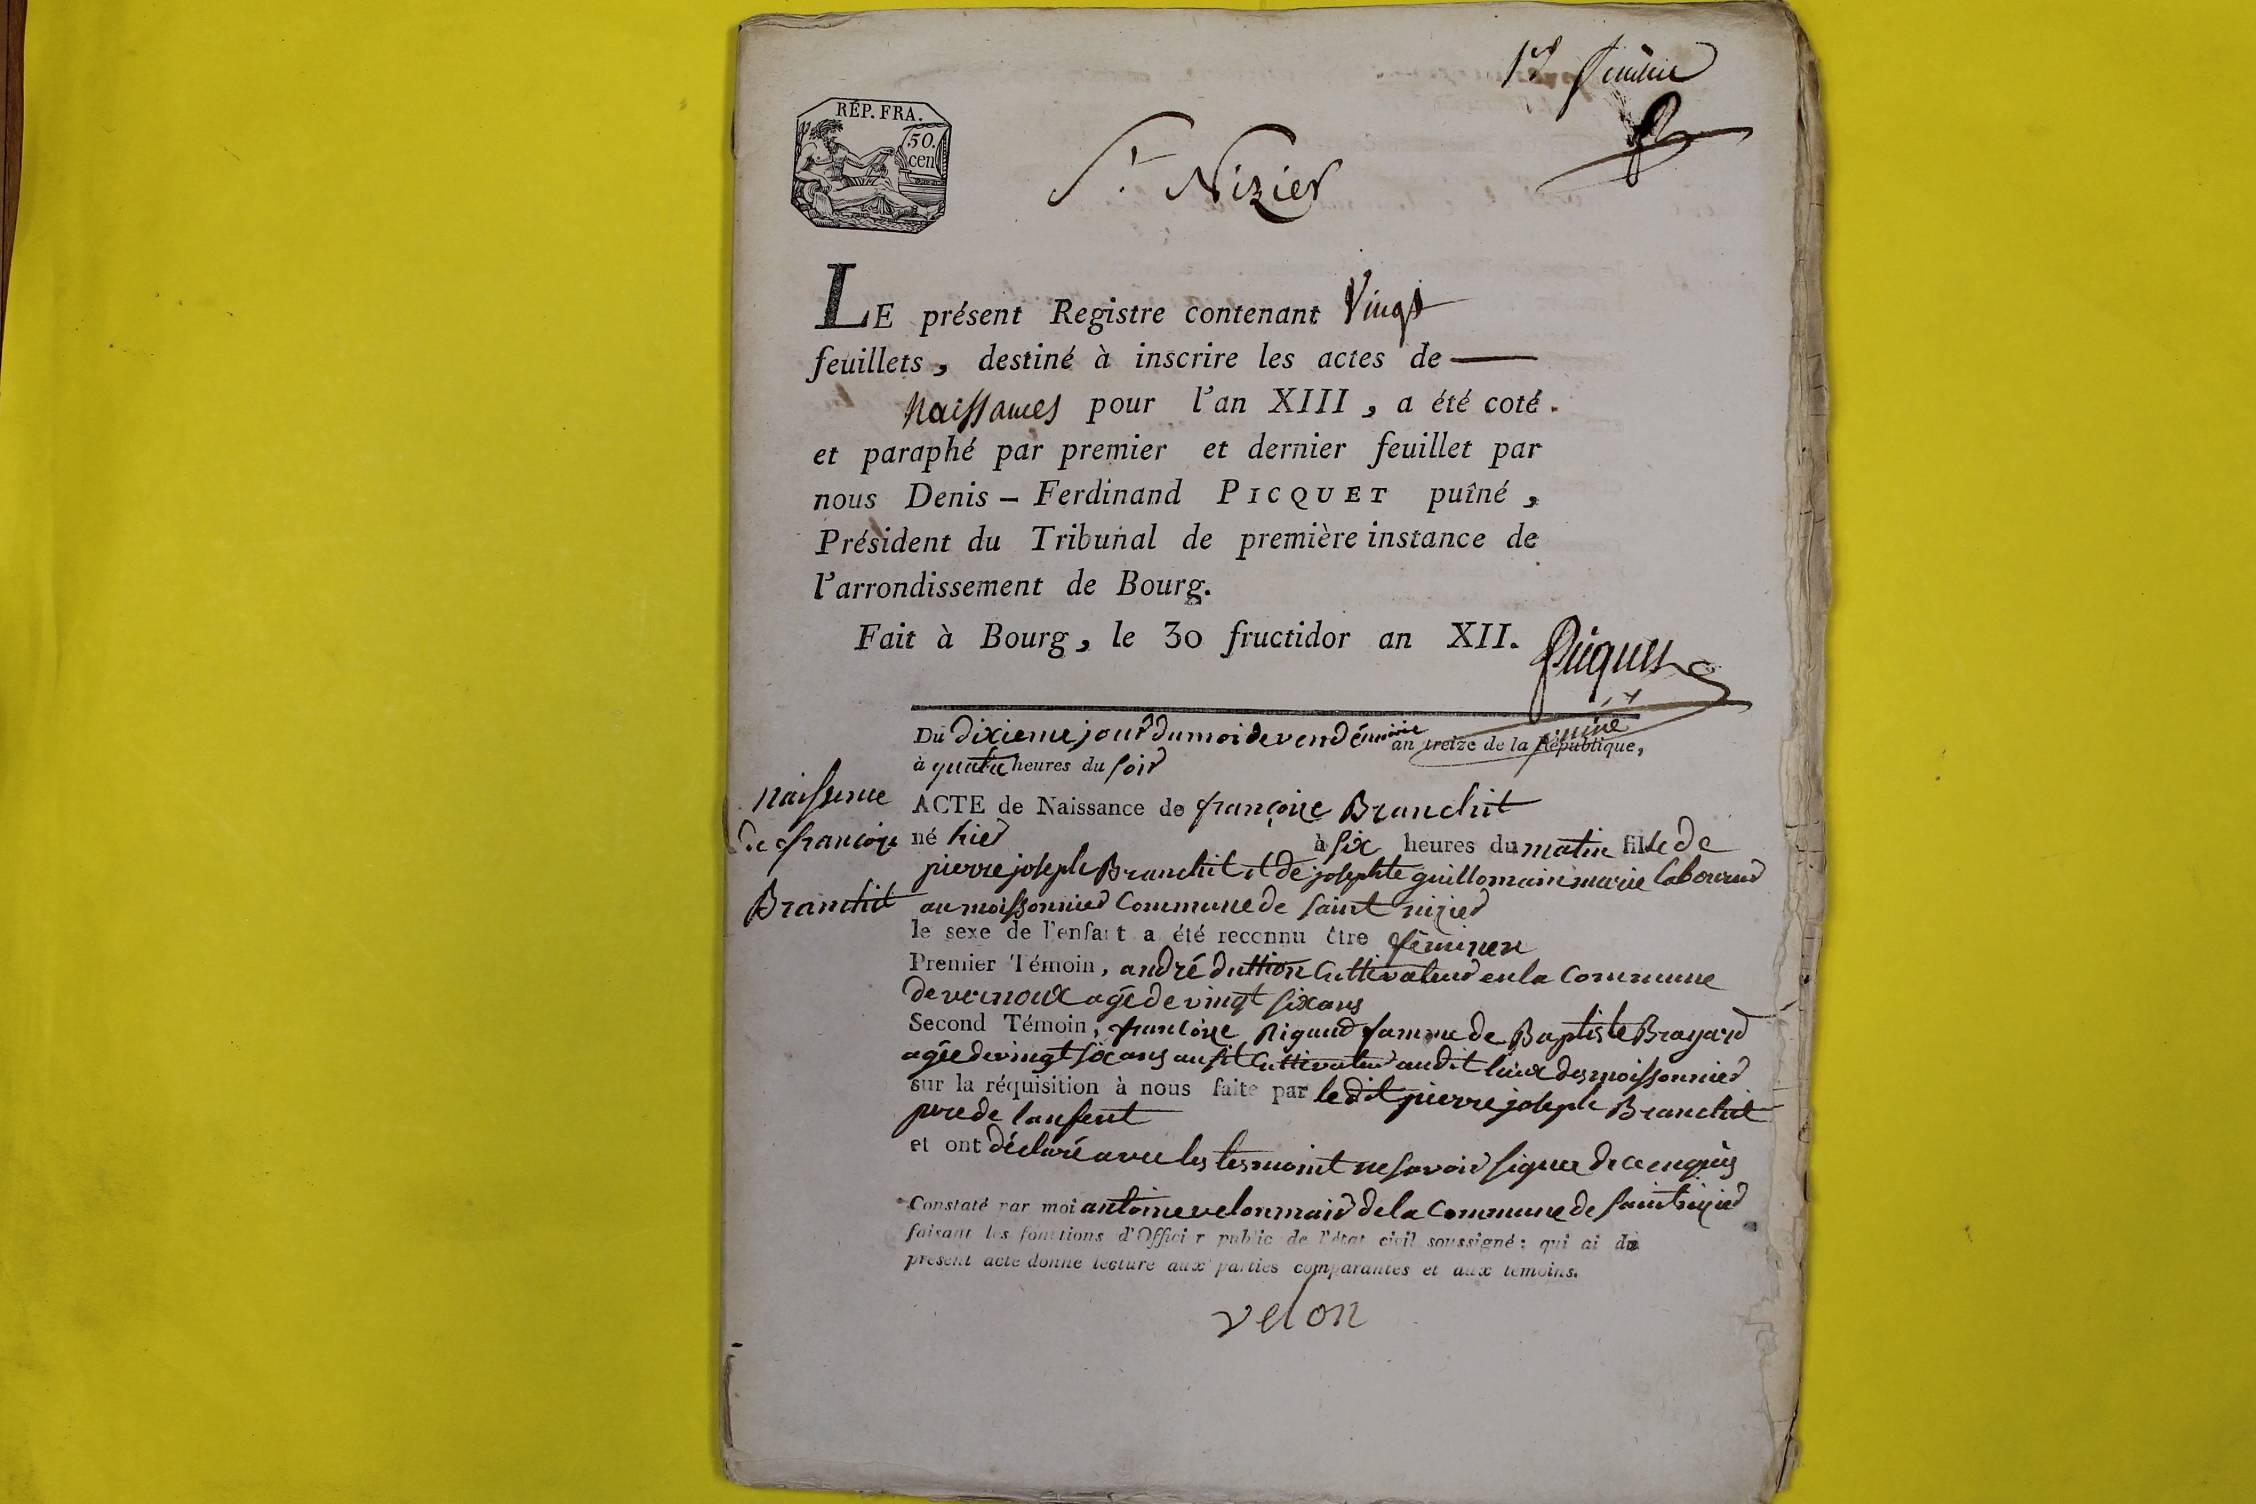 1er feuillet
RÉP. FRA.
50.
cen
St. Nizier
LE présent Registre contenant Vingt
feuillets, destiné à inscrire les actes de
Naissances pour l'an XIII, a été coté
et paraphé par premier et dernier feuillet par
nous Denis-Ferdinand PICQUET puîné,
Président du Tribunal de première instance de
l'arrondissement de Bourg.
Fait à Bourg, le 30 fructidor an XII.
Picquet
puiné
Du dixieme jour du moi de vendémiaire an treize de la République,
à quatre heures du soir
naissence
de françoise
Branchit
ACTE de Naissance de françoise Branchit
né hier à six heures du matin fille de
pierre joseph Branchit et de josephte guillomain marie laboureur
au moissonnier Commune de saint nizier
le sexe de l'enfant a été reconnu être féminen
Premier Témoin, andré duttion Cultivateur en la Commune
de vernoux agé de vingt six ans
Second Témoin, françoise Rigaud famme de Baptiste Brayard
agée de vingt six ans ausit Cultivateur audit lieux des moissonnier
sur la réquisition à nous faite par le dit pierre joseph Branchit
pere de lanfent
et ont déclaré avec les tesmoint ne savoir signer de ce enquis
Constaté par moi antoine velon mair de la Commune de saint nizier
faisant les fonctions d'Officier public de l'état civil soussigné; qui ai du
présent acte donné lecture aux parties comparantes et aux témoins.
velon